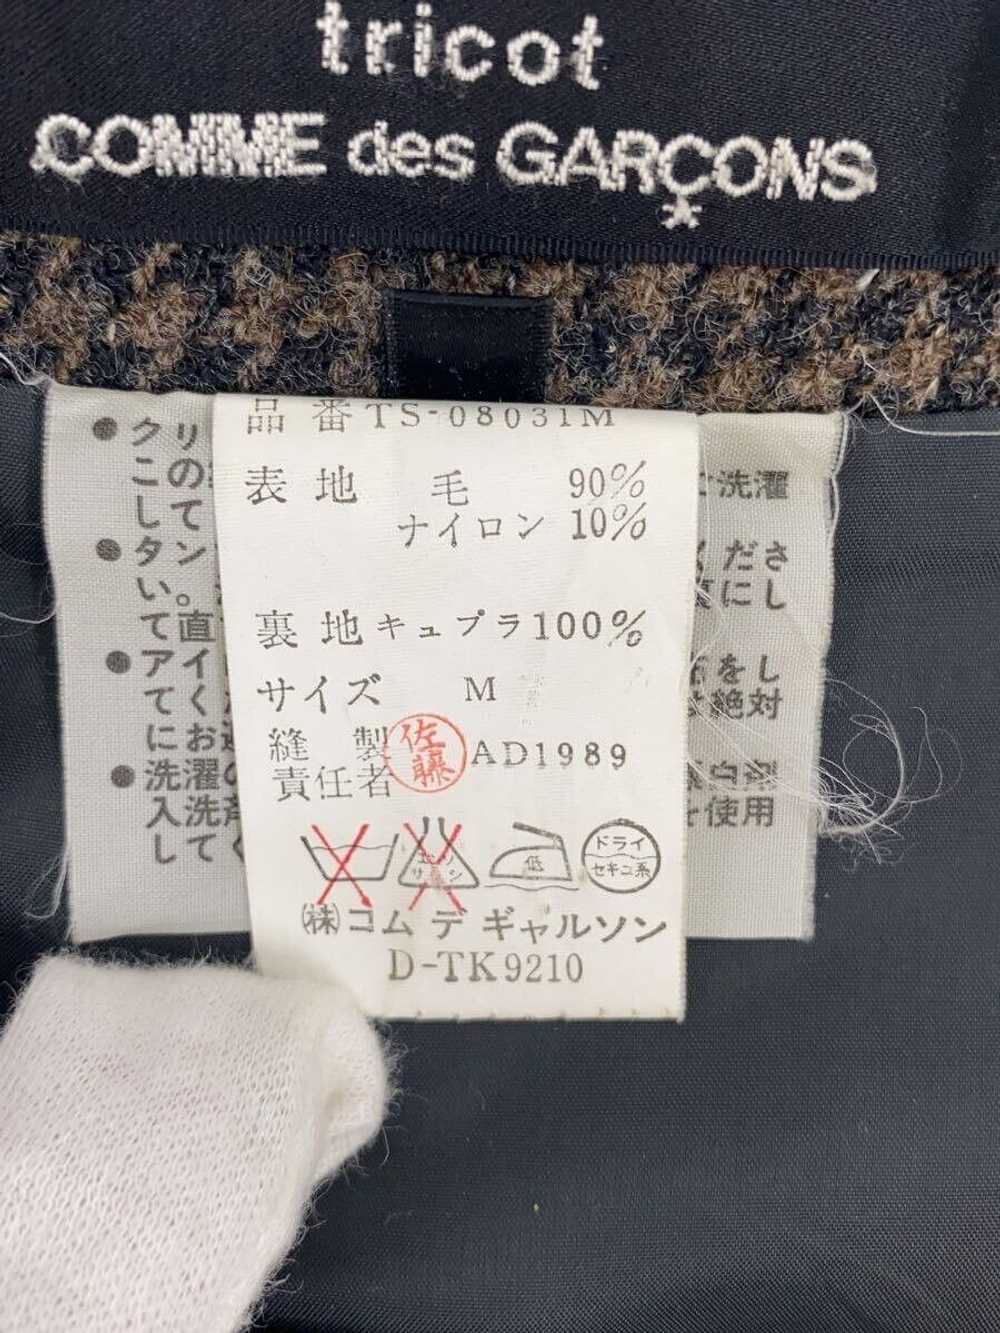 tricot
COMME des GARÇONS
品番 TS-08031M
表地 毛 90%
ナイロン 10%
裏地 キュプラ 100%
サイズ M
縫製
責任者
佐藤
AD1989
エンソ
サラシ
低
ドライ
セキユ系
㈱コム デ ギャルソン
D-TK9210
●クリ
この
して
●タン
い。
て直
●アイ
てく
にお
●洗濯の
入洗剤
して
洗濯
くださ
裏にし
をし
絶対
白剤
を使用